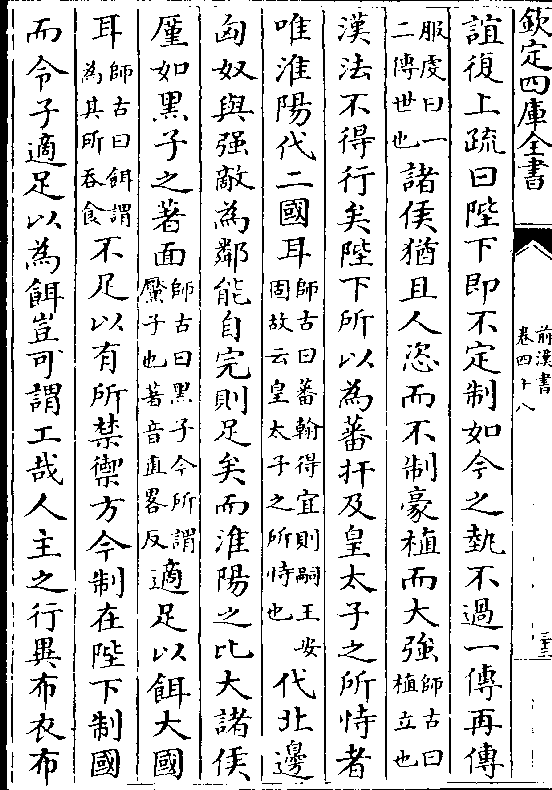 欽定四庫全書
前漢書
卷四十八
二十三
誼復上疏曰陛下即不定制如今之埶不過一傳再傳
服虔曰一二傳世也諸侯猶且人恣而不制豪植而大強師古曰植立也
漢法不得行矣陛下所以為蕃扞及皇太子之所恃者
唯淮陽代二國耳師古曰蕃翰得宜則嗣王安固故云皇太子之所恃也代北邊
匈奴與强敵為鄰能自完則足矣而淮陽之比大諸侯
厪如黑子之著面師古曰黑子今所謂黶子也著音直畧反適足以餌大國
耳師古曰餌謂為其所吞食不足以有所禁禦方今制在陛下制國
而令子適足以為餌豈可謂工哉人主之行異布衣布